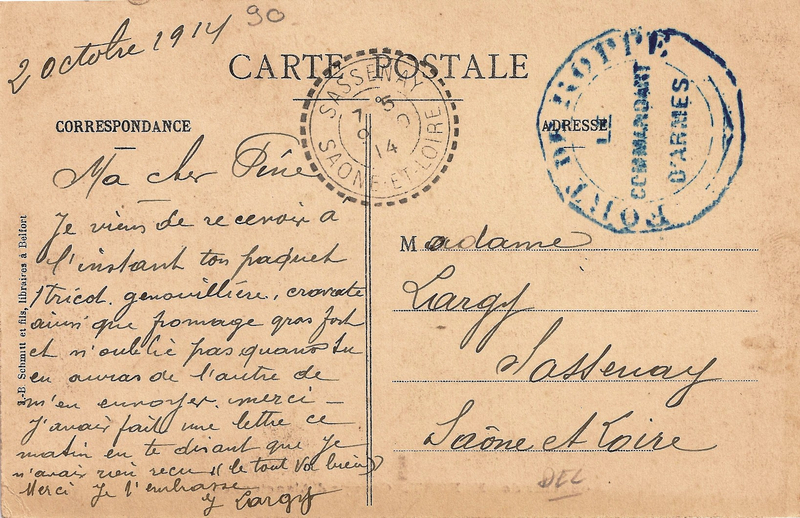 2 octobre 1914
90
CARTE POSTALE
SASSENAY
SAÔNE-ET-LOIRE
14
FORT DE ROPPE
LE
COMMANDANT
D'ARMES
CORRESPONDANCE
ADRESSE
Ma cher Fine
Je viens de recevoir a
l'instant ton paquet
1 tricot. genouillière. cravate
ainsi que fromage gras fort
et n'oublie pas quand tu
en auras de l'autre de
m'en envoyer. merci -
J'avais fait une lettre ce
matin en te disant que je
n'avais rien recu (le tout va bien)
Merci Je t'embrasse
Largy
Madame
Largy
Sassenay
Saône et Loire
J.-B Schmitt et fils, libraires à Belfort
DEL